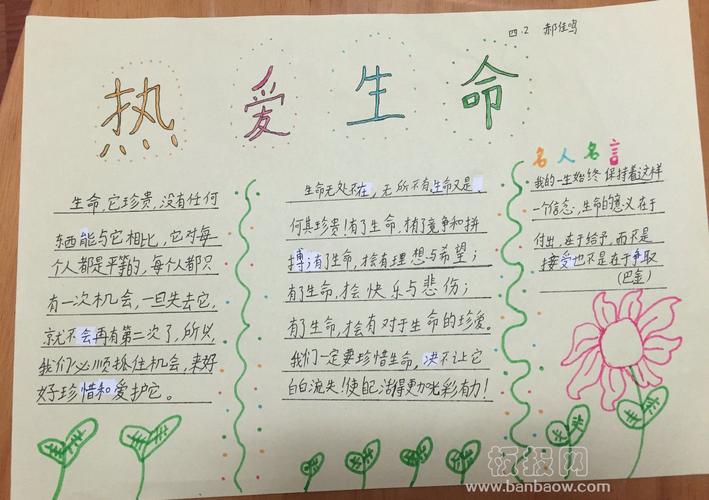 四.2 郝佳鸣
热爱生命
生命,它珍贵,没有任何
东西能与它相比,它对每
个人都是平等的,每个人都只
有一次机会,一旦失去它,
就不会再有第二次了,所以,
我们必顺抓住机会,来好
好珍惜和爱护它。
生命无处不在,无所不有.生命又是
何其珍贵!有了生命,才有了竞争和拼
搏;有了生命,才会有理想与希望;
有了生命,才会快乐与悲伤;
有了生命,才会有对于生命的珍爱。
我们一定要珍惜生命,决不让它
白白流失!使自己活得更加光彩有力!
名人名言
我的一生始终保持着这样
一个信念,生命的意义在于
付出,在于给予,而不是
接受也不是在于争取
(巴金)
板报网
www.banbaow.com